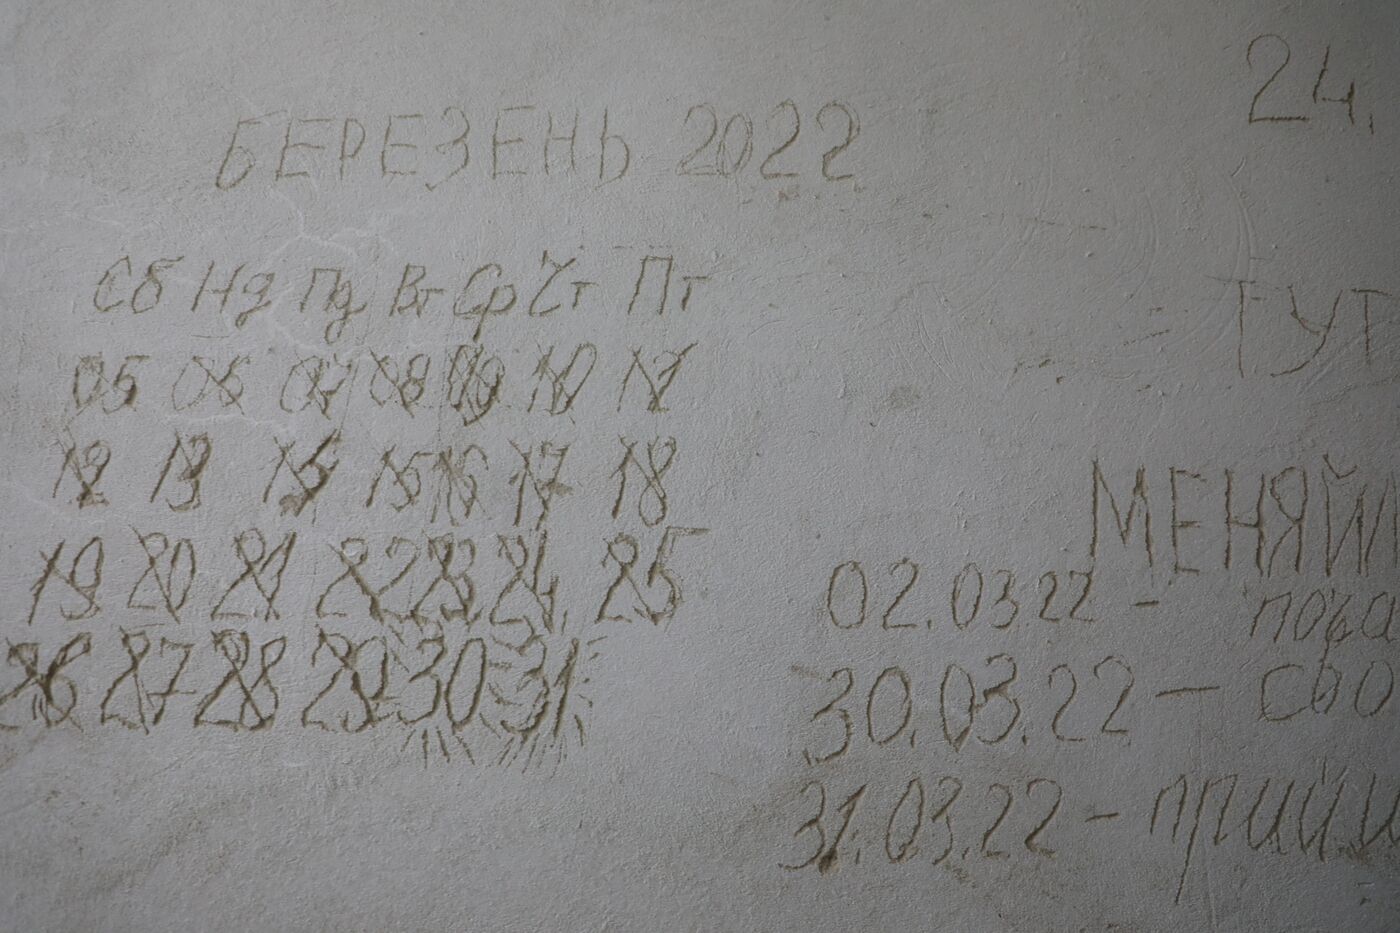 БЕРЕЗЕНЬ 2022
Сб Нд Пд Вт Ср Чт Пт
05 06 07 08 09 10 11
12 13 14 15 16 17 18
19 20 21 22 23 24 25
26 27 28 29 30 31
24.
ТУТ
МЕНЯЙ
02.03.22 -
30.03.22 - сво
31.03.22 - прий